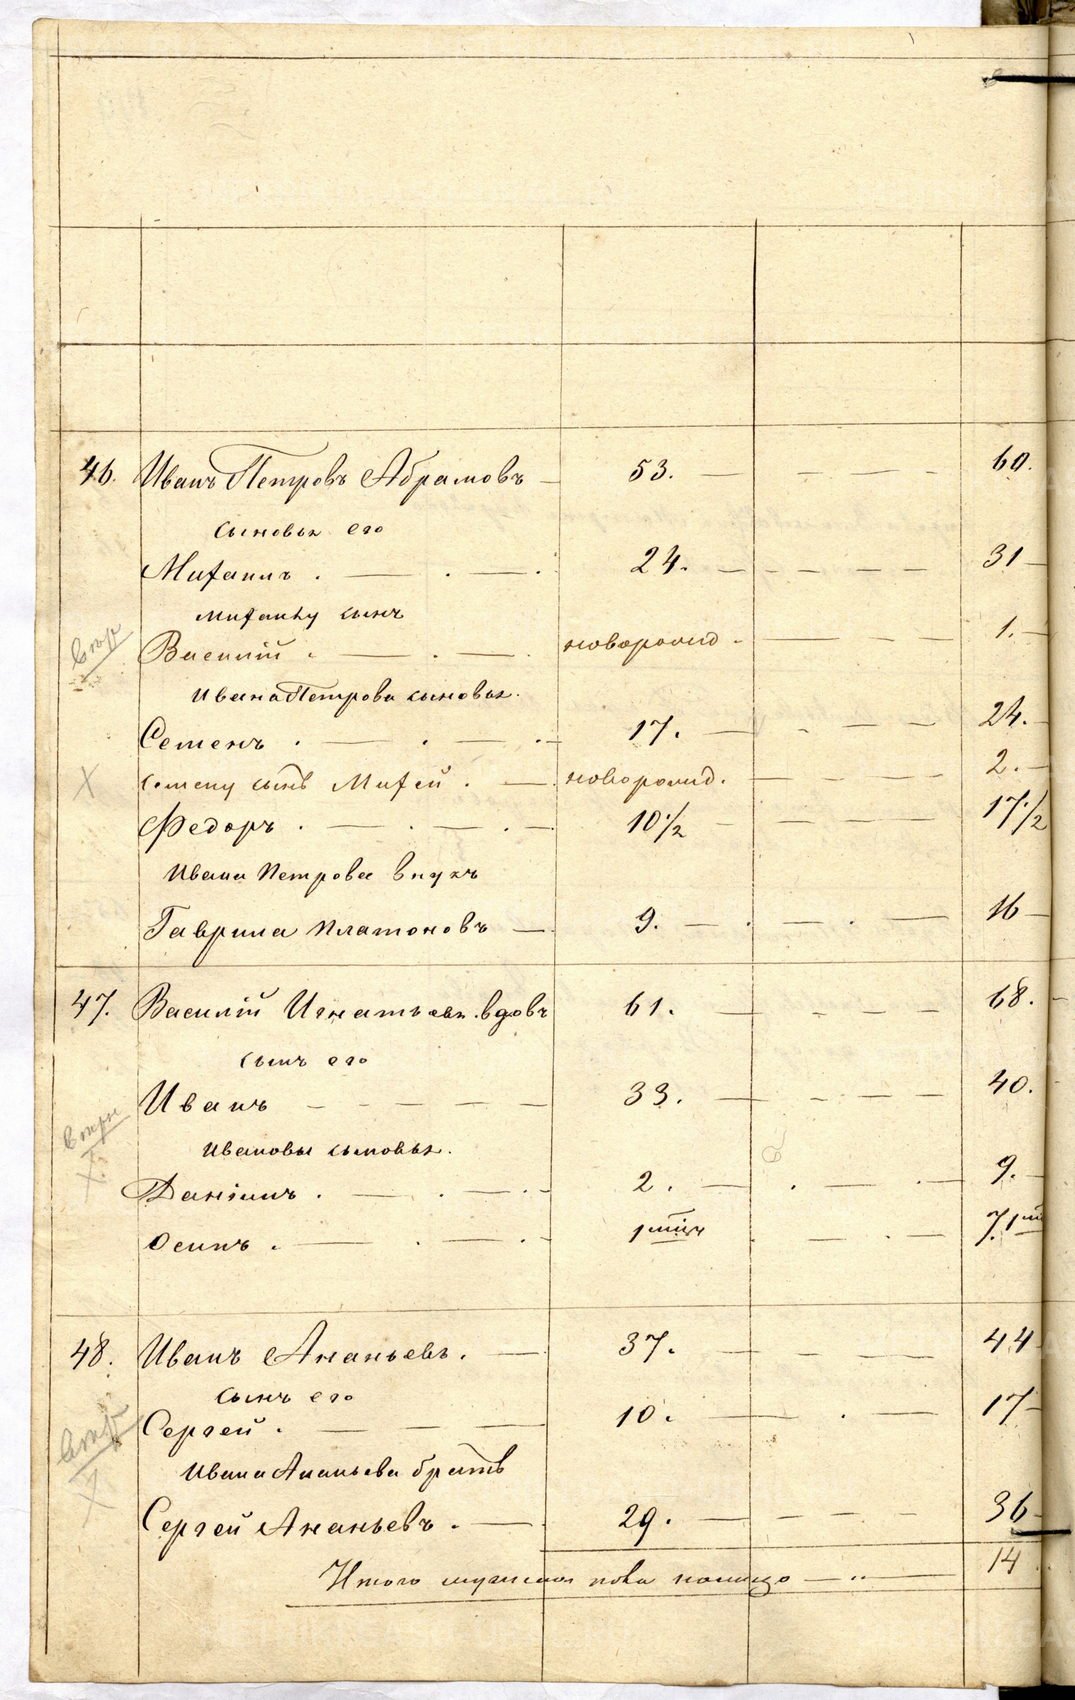 46. Иванъ Петровъ Абрамовъ — 53. — — — — 60.
сыновья его
Михаилъ . — . — . 24. — — — — — 31 —
Михаилу сынъ
Василій . — . — новорожд. — — — 1. —
Ивана Петрова сыновья.
Семенъ . — . — . — 17. — - — — — 24. —
Семену сынъ Михей . — новорожд. — — — — 2. —
Федоръ . — . — . — 10 1/2 — — — — — 17 1/2
Ивана Петрова внукъ
Гаврила Платоновъ — 9. — . — . — 16 —
47. Василій Игнатьевъ вдовъ 61. — - — — — 68. —
сынъ его
Иванъ — — — — — 33. — - — — — 40.
Ивановы сыновья.
Даніилъ . — . — . — 2. — . — . — 9. —
Осипъ . — . — . — 1 — . — . — 7.1
48. Иванъ Ананьевъ. — 37. — — — — 44
сынъ его
Сергей . — — — 10. — . — 17 —
Ивана Ананьева братъ
Сергей Ананьевъ . — 29. — — — — — 36 —
Итого мужеска пола налицо — „ — 14